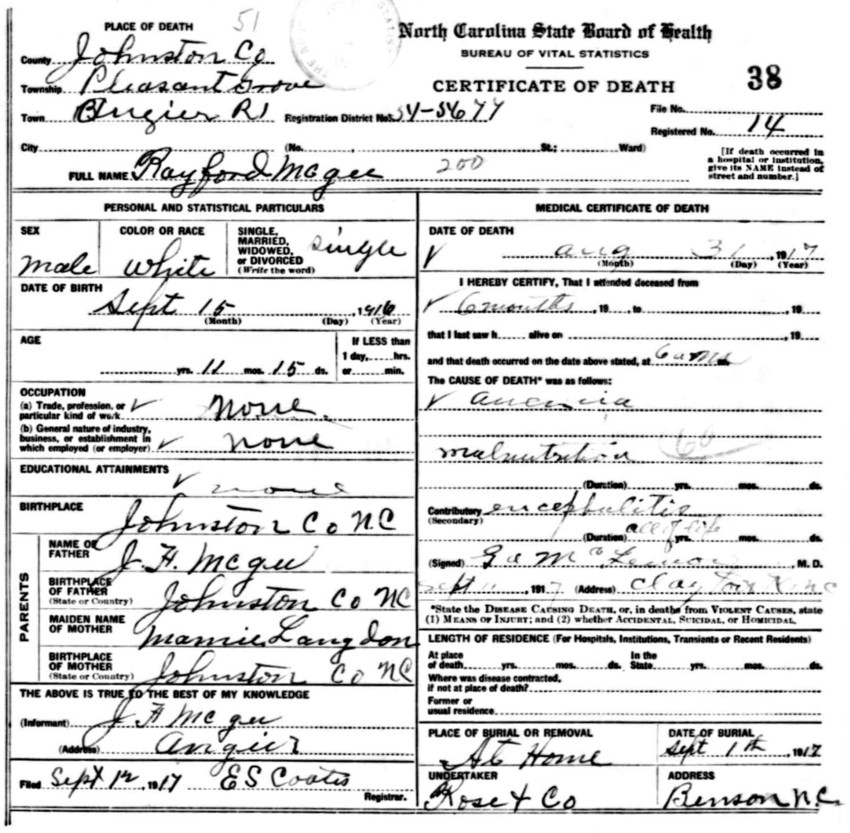 PLACE OF DEATH 51
North Carolina State Board of Health
BUREAU OF VITAL STATISTICS
CERTIFICATE OF DEATH 38
County Johnston Co
Township Pleasant Grove
Town Angier R1 Registration District No. 54-5677 File No.
Registered No. 14
City (No. , St.; Ward)
[If death occurred in a hospital or institution, give its NAME instead of street and number.]
FULL NAME Rayford McGee 200
PERSONAL AND STATISTICAL PARTICULARS
SEX male
COLOR OR RACE White
SINGLE, MARRIED, WIDOWED, or DIVORCED (Write the word) single
DATE OF BIRTH
Sept 15, 1916
(Month) (Day) (Year)
AGE
yrs. 11 mos. 15 ds.
If LESS than 1 day, hrs. or min.
OCCUPATION
(a) Trade, profession, or particular kind of work none.
(b) General nature of industry, business, or establishment in which employed (or employer) none
EDUCATIONAL ATTAINMENTS none
BIRTHPLACE Johnston Co NC
PARENTS
NAME OF FATHER J. H. McGee
BIRTHPLACE OF FATHER (State or Country) Johnston Co NC
MAIDEN NAME OF MOTHER Mamie Langdon
BIRTHPLACE OF MOTHER (State or Country) Johnston Co NC
THE ABOVE IS TRUE TO THE BEST OF MY KNOWLEDGE
(Informant) J H McGee
(Address) Angier
Filed Sept 12, 1917 E S Coats
Registrar.
MEDICAL CERTIFICATE OF DEATH
DATE OF DEATH
Aug 31 1917
(Month) (Day) (Year)
I HEREBY CERTIFY, That I attended deceased from
6 months, 19 , to , 19
that I last saw h alive on , 19
and that death occurred on the date above stated, at 6 a m.
The CAUSE OF DEATH* was as follows:
anemia
malnutrition 60
(Duration) yrs. mos. ds.
Contributory (Secondary) encephalitis
(Duration) all of life yrs. mos. ds.
(Signed) M. D.
Sept 11, 1917 (Address) Clayton NC
*State the DISEASE CAUSING DEATH, or, in deaths from VIOLENT CAUSES, state (1) MEANS OF INJURY; and (2) whether ACCIDENTAL, SUICIDAL, or HOMICIDAL.
LENGTH OF RESIDENCE (For Hospitals, Institutions, Transients or Recent Residents)
At place of death yrs. mos. ds. In the State yrs. mos. ds.
Where was disease contracted, if not at place of death?
Former or usual residence
PLACE OF BURIAL OR REMOVAL At Home
DATE OF BURIAL Sept 1th, 1917
UNDERTAKER Rose & Co
ADDRESS Benson N.C.